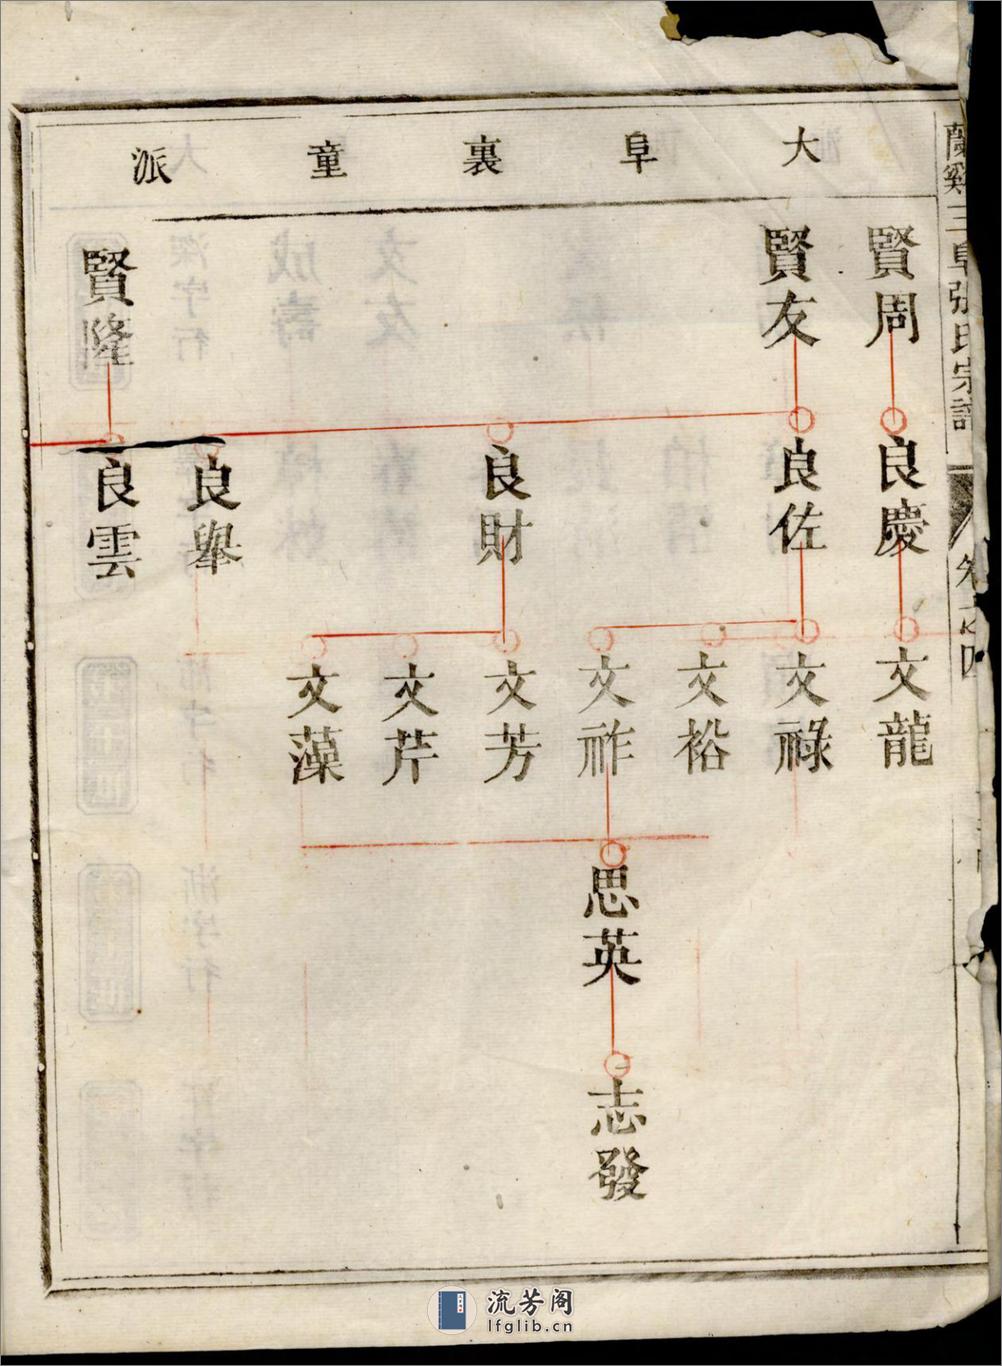 蘭谿三阜張氏宗譜
大阜裏童派
賢周
賢友
賢隆
良慶
良佐
良財
良舉
良雲
文龍
文祿
文裕
文祚
文芳
文芹
文藻
思英
志發
流芳阁
lfglib.cn